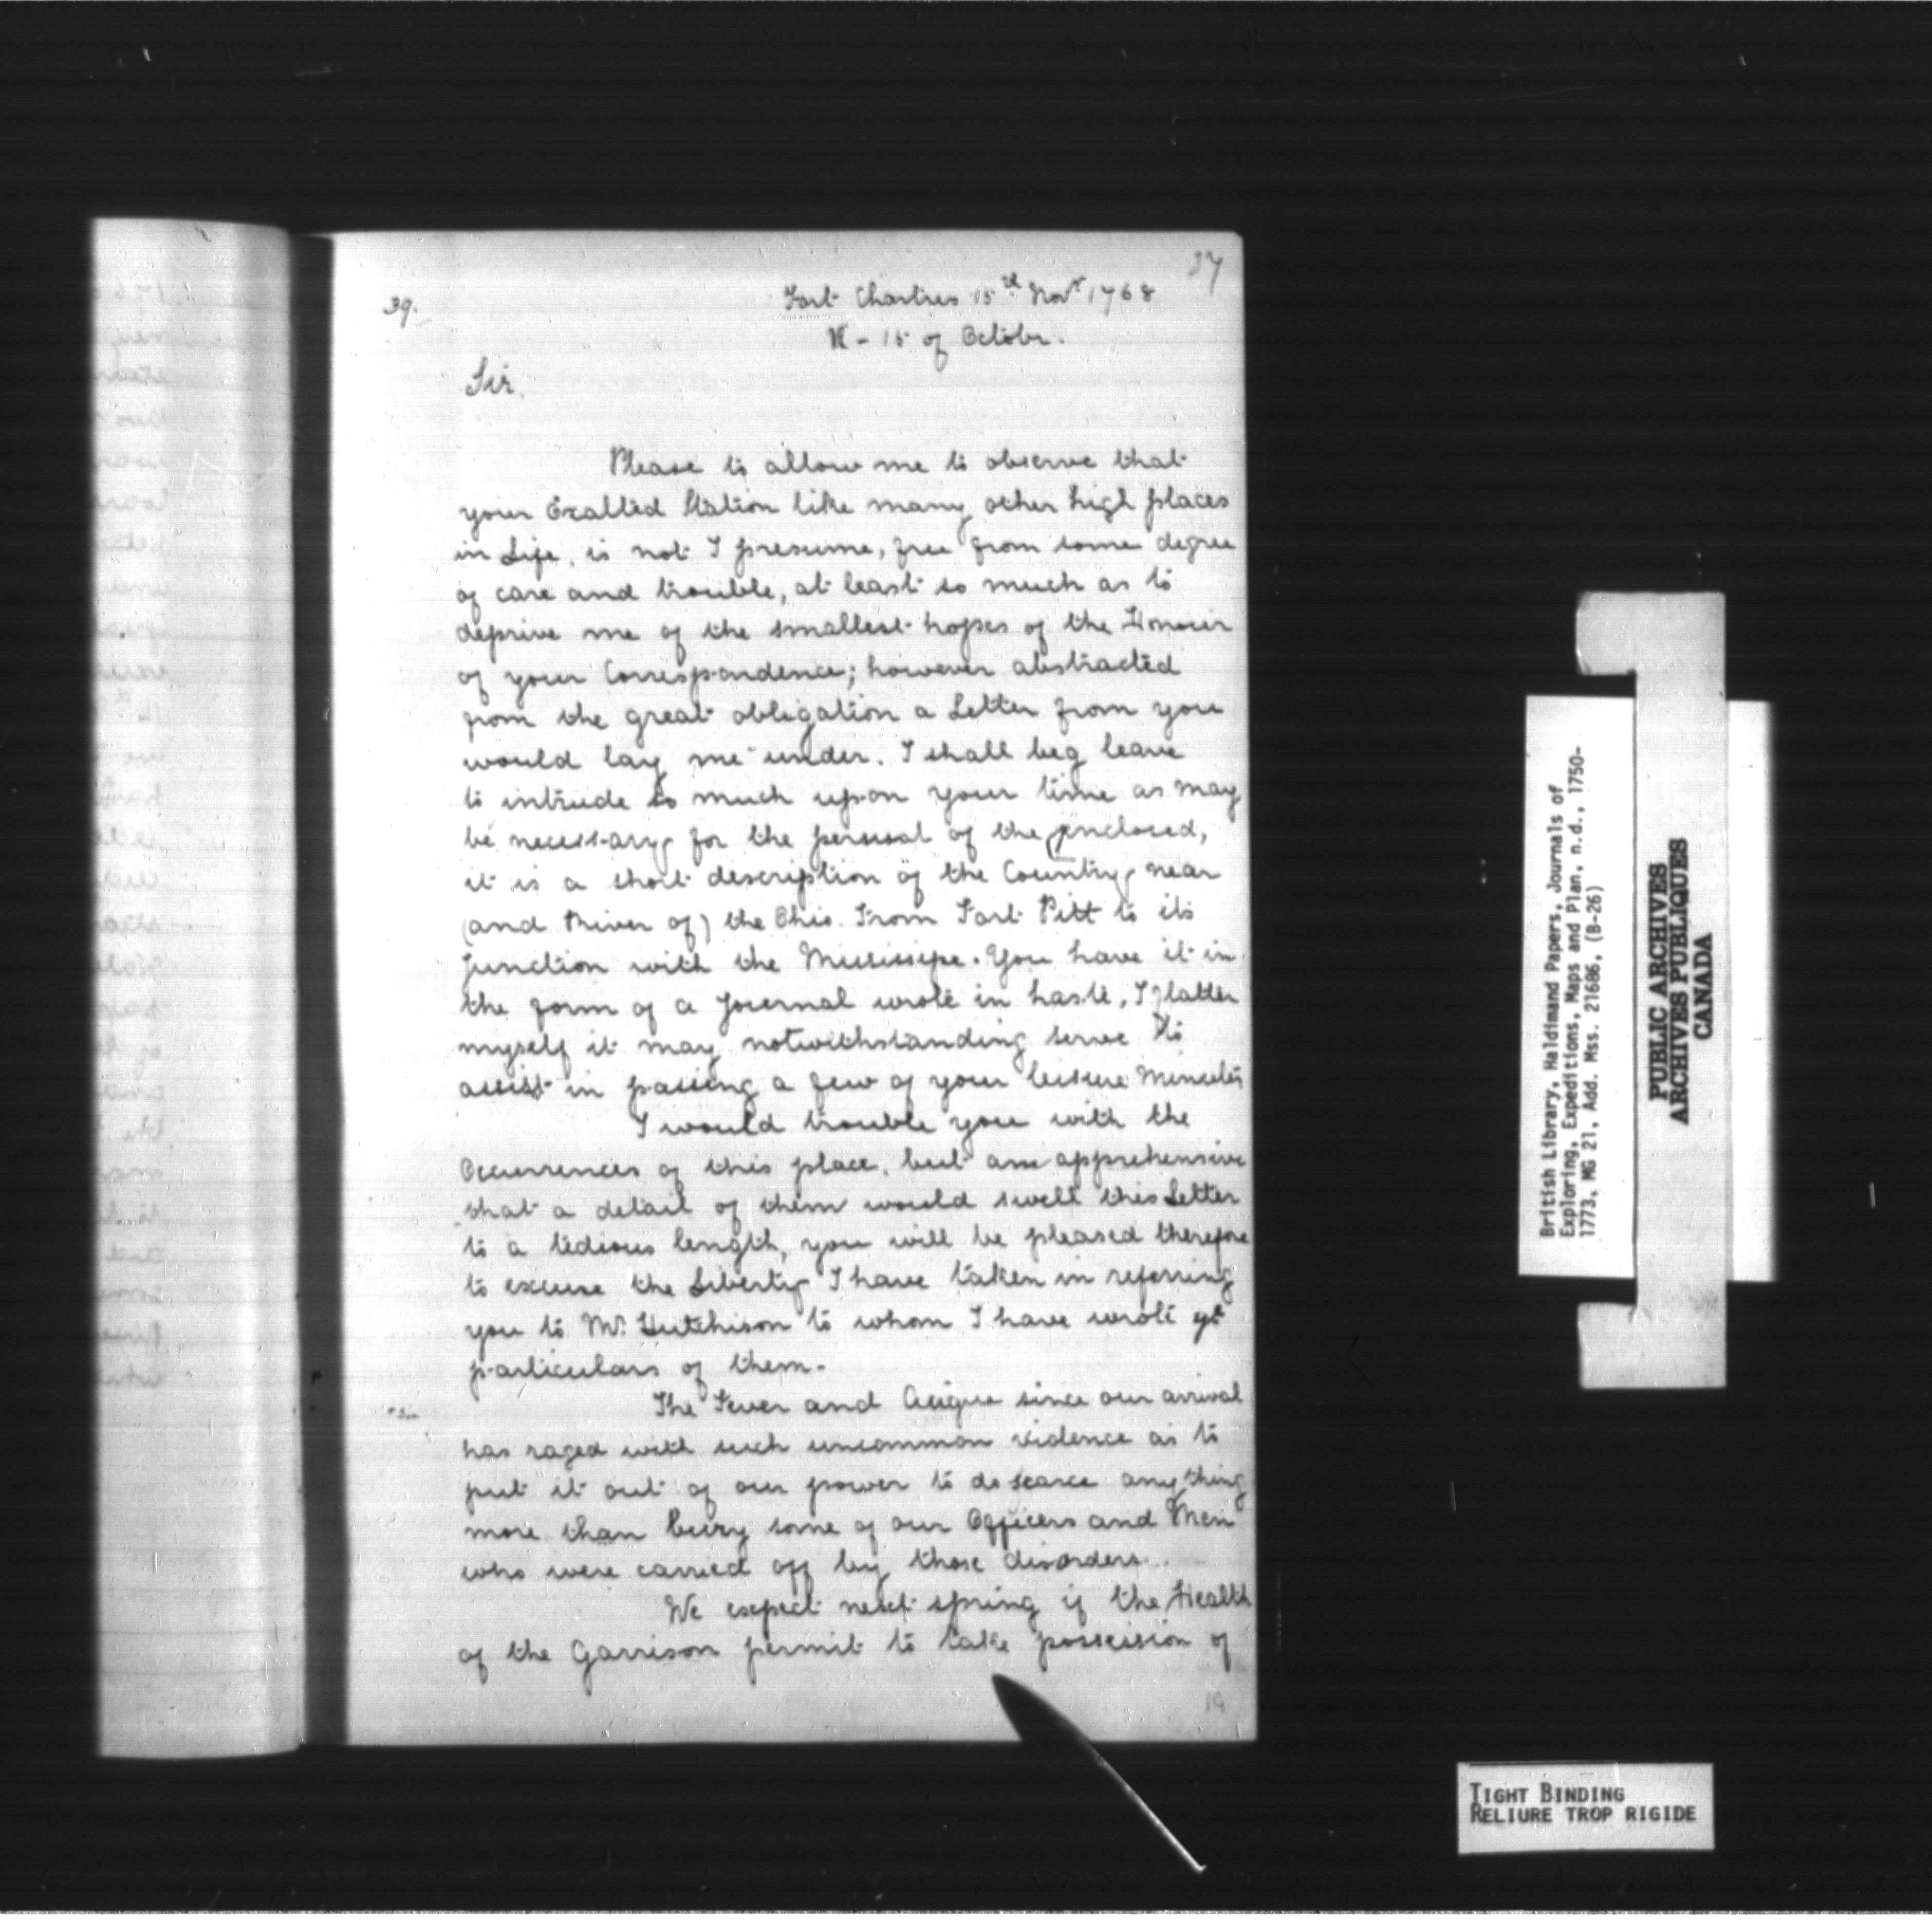 37
39.
Fort Chartres 15th Novr 1768
R - 15 of October.
Sir.
Please to allow me to observe that
your Exalted Station like many other high places
in Life, is not I presume, free from some degree
of care and trouble, at least so much as to
deprive me of the smallest hopes of the Honour
of your Correspondence; however abstracted
from the great obligation a Letter from you
would lay me under. I shall beg leave
to intrude so much upon your time as may
be necessary for the perusal of the enclosed,
it is a short description of the Country near
(and River of) the Ohio. From Fort Pitt to its
Junction with the Mississipe. You have it in
the form of a Journal wrote in haste, I flatter
myself it may notwithstanding serve to
assist in passing a few of your leisure Minutes
I would trouble you with the
Occurrences of this place, but am apprehensive
that a detail of them would swell this Letter
to a tedious length, you will be pleased therefore
to excuse the Liberty I have taken in referring
you to Mr. Hutchison to whom I have wrote ye
particulars of them.
The Fever and Aigue since our arrival
has raged with such uncommon violence as to
put it out of our power to do scarce anything
more than bury some of our Officers and Men
who were carried off by those disorders.
We expect next spring if the Health
of the Garrison permit to take possession of
19
British Library, Haldimand Papers, Journals of
Exploring, Expeditions, Maps and Plan, n.d., 1750-
1773, MG 21, Add. Mss. 21686, (B-26)
PUBLIC ARCHIVES
ARCHIVES PUBLIQUES
CANADA
TIGHT BINDING
RELIURE TROP RIGIDE